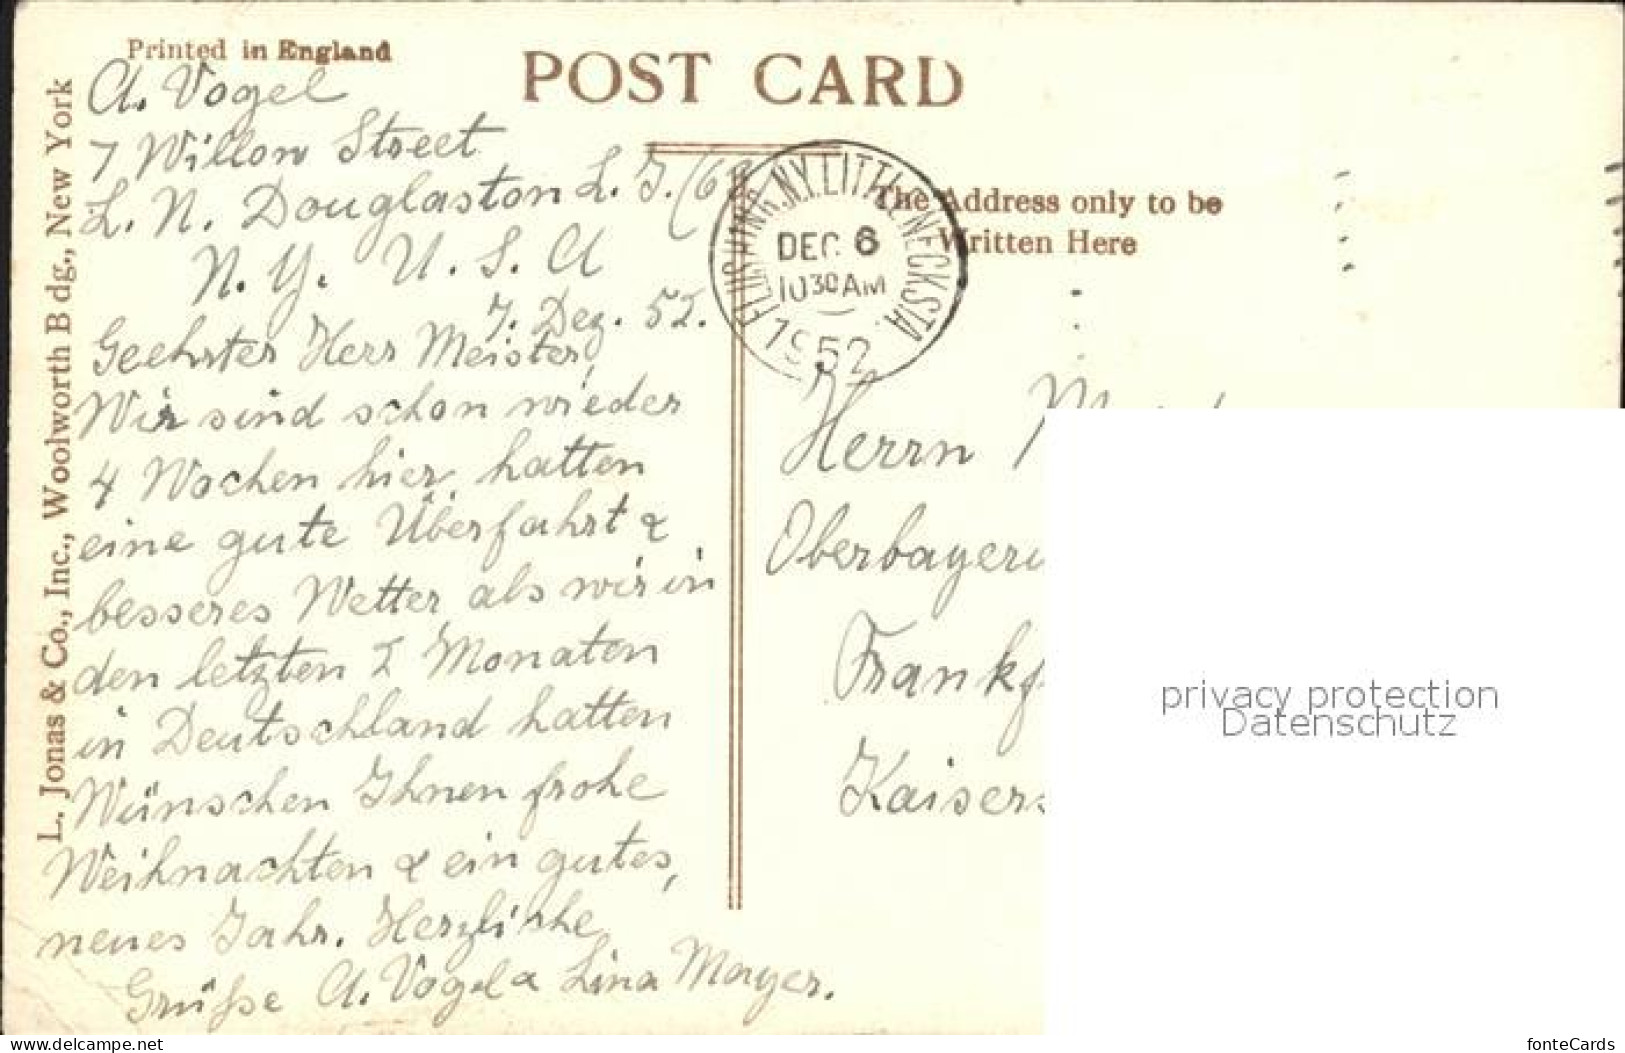 Printed in England
POST CARD
L. Jonas & Co., Inc., Woolworth B dg., New York
A. Vogel
7 Willow Street
L. N. Douglaston L. I. (6
N. Y. U. S. A
7. Dez. 52.
Geehrter Herr Meister,
Wir sind schon wieder
4 Wochen hier, hatten
eine gute Überfahrt &
besseres Wetter als wir in
den letzten 2 Monaten
in Deutschland hatten
Wünschen Ihnen frohe
Weihnachten & ein gutes,
neues Jahr. Herzliche
Grüße A. Vogel & Lina Mayer.
FLUSHING, N.Y. LITTLE NECK STA.
DEC 6
10 30 AM
1952
The Address only to be
Written Here
Herrn
Oberbayern
Frankf
Kaisers
privacy protection
Datenschutz
www.delcampe.net
fonteCards